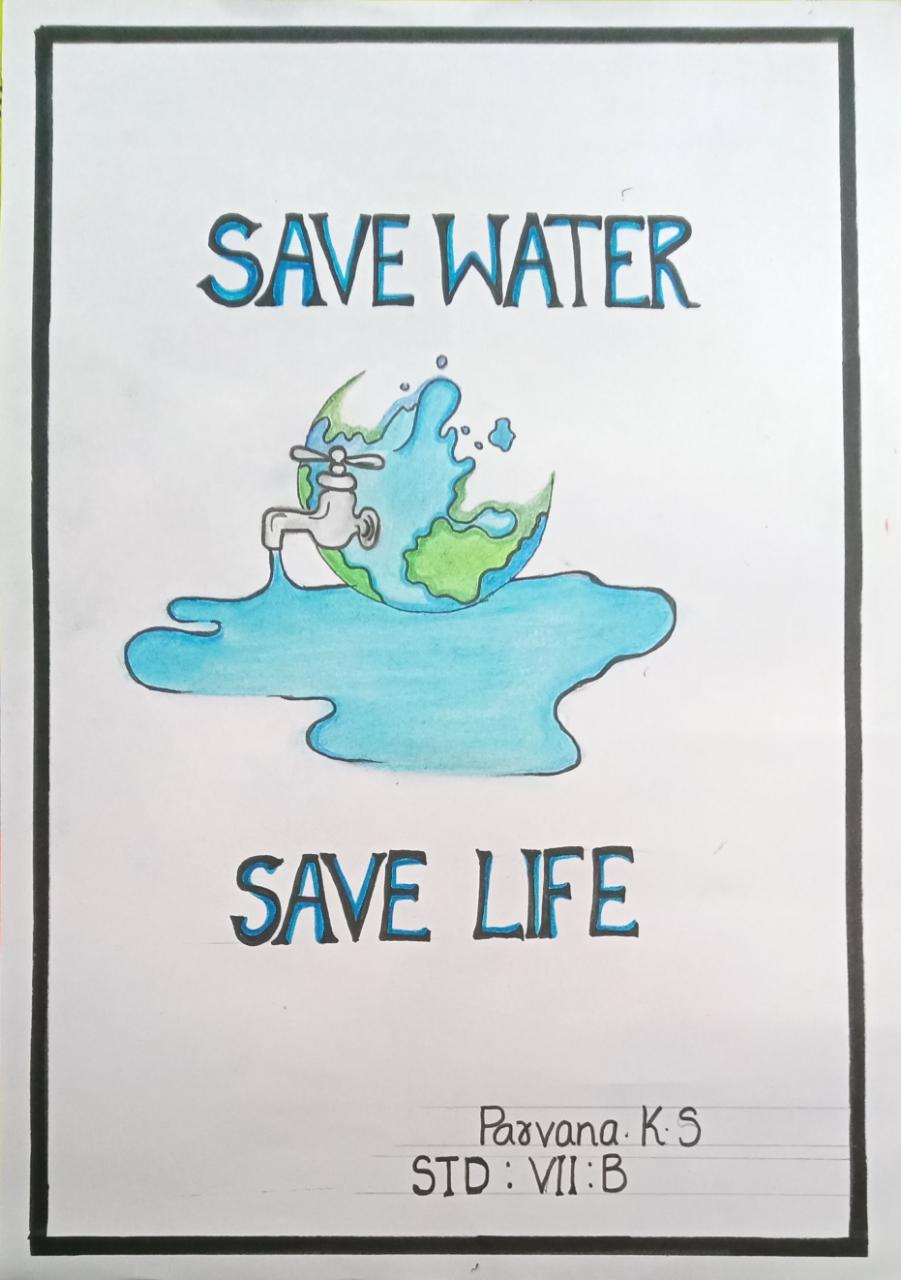 SAVE WATER
SAVE LIFE
Parvana. K. S
STD : VII : B